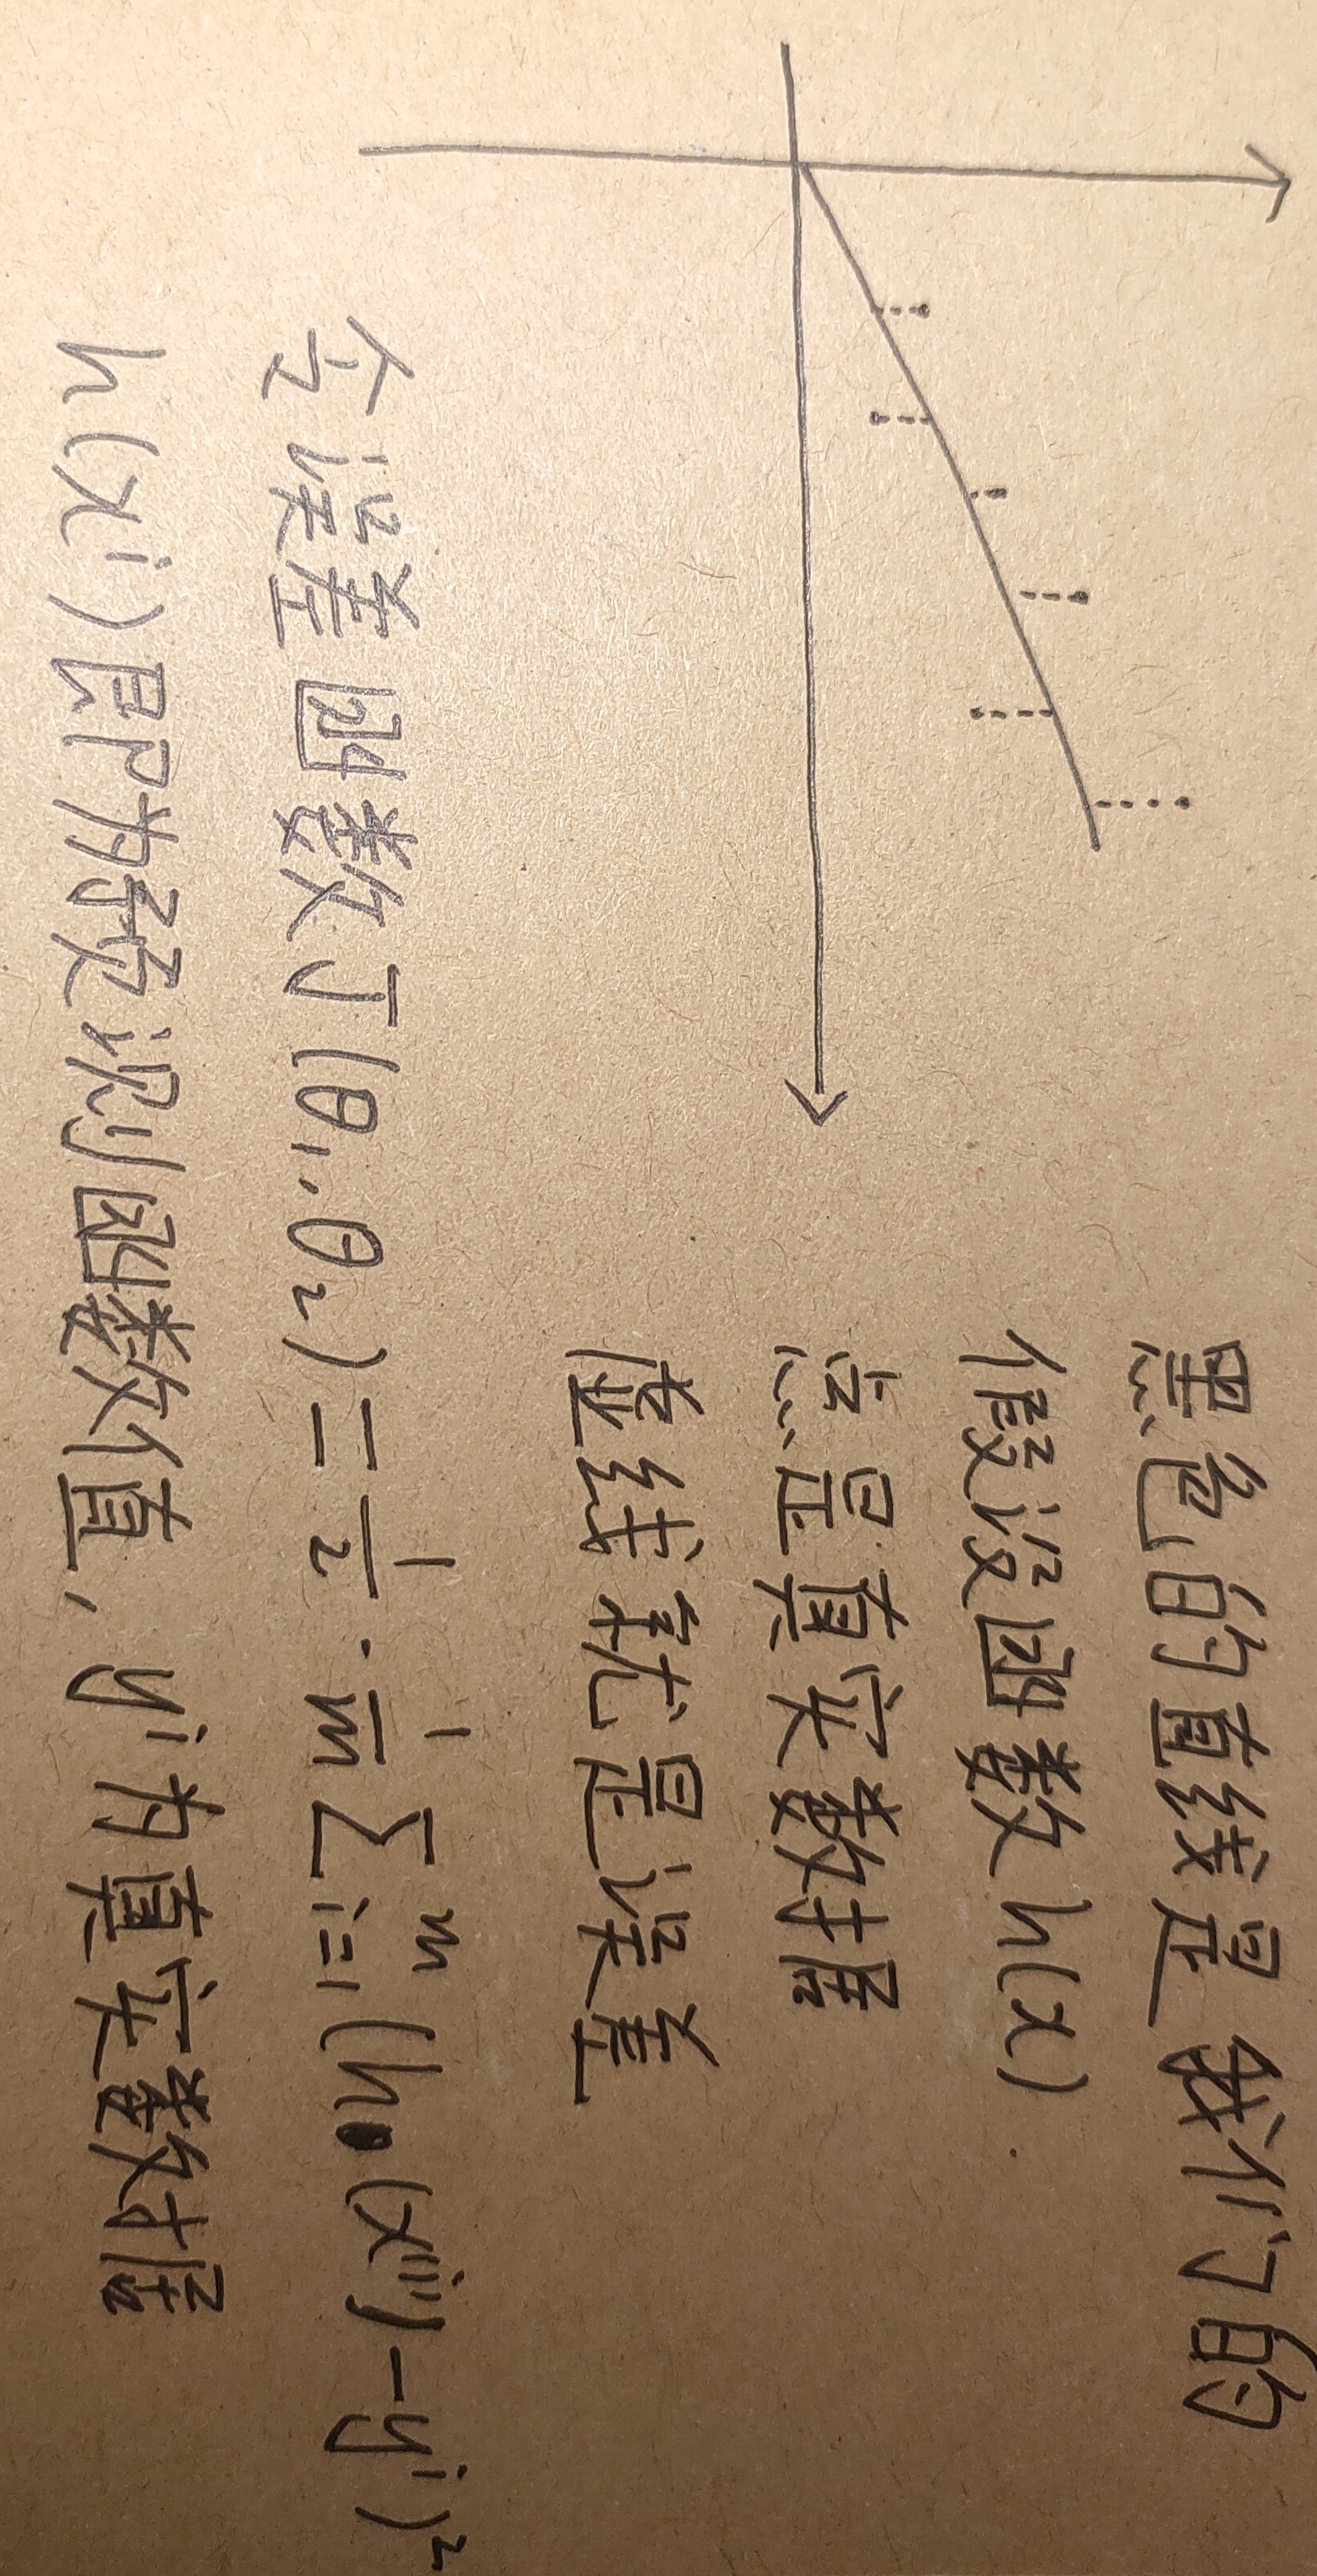 黑色的直线是我们的
假设函数h(x)
点是真实数据
虚线就是误差
全误差函数J(θ₁,θ₂)=1/2·1/m∑ᵢ₌₁ᵐ(h(xⁱ)-yⁱ)²
h(xⁱ)即为预测函数值,yⁱ为真实数据